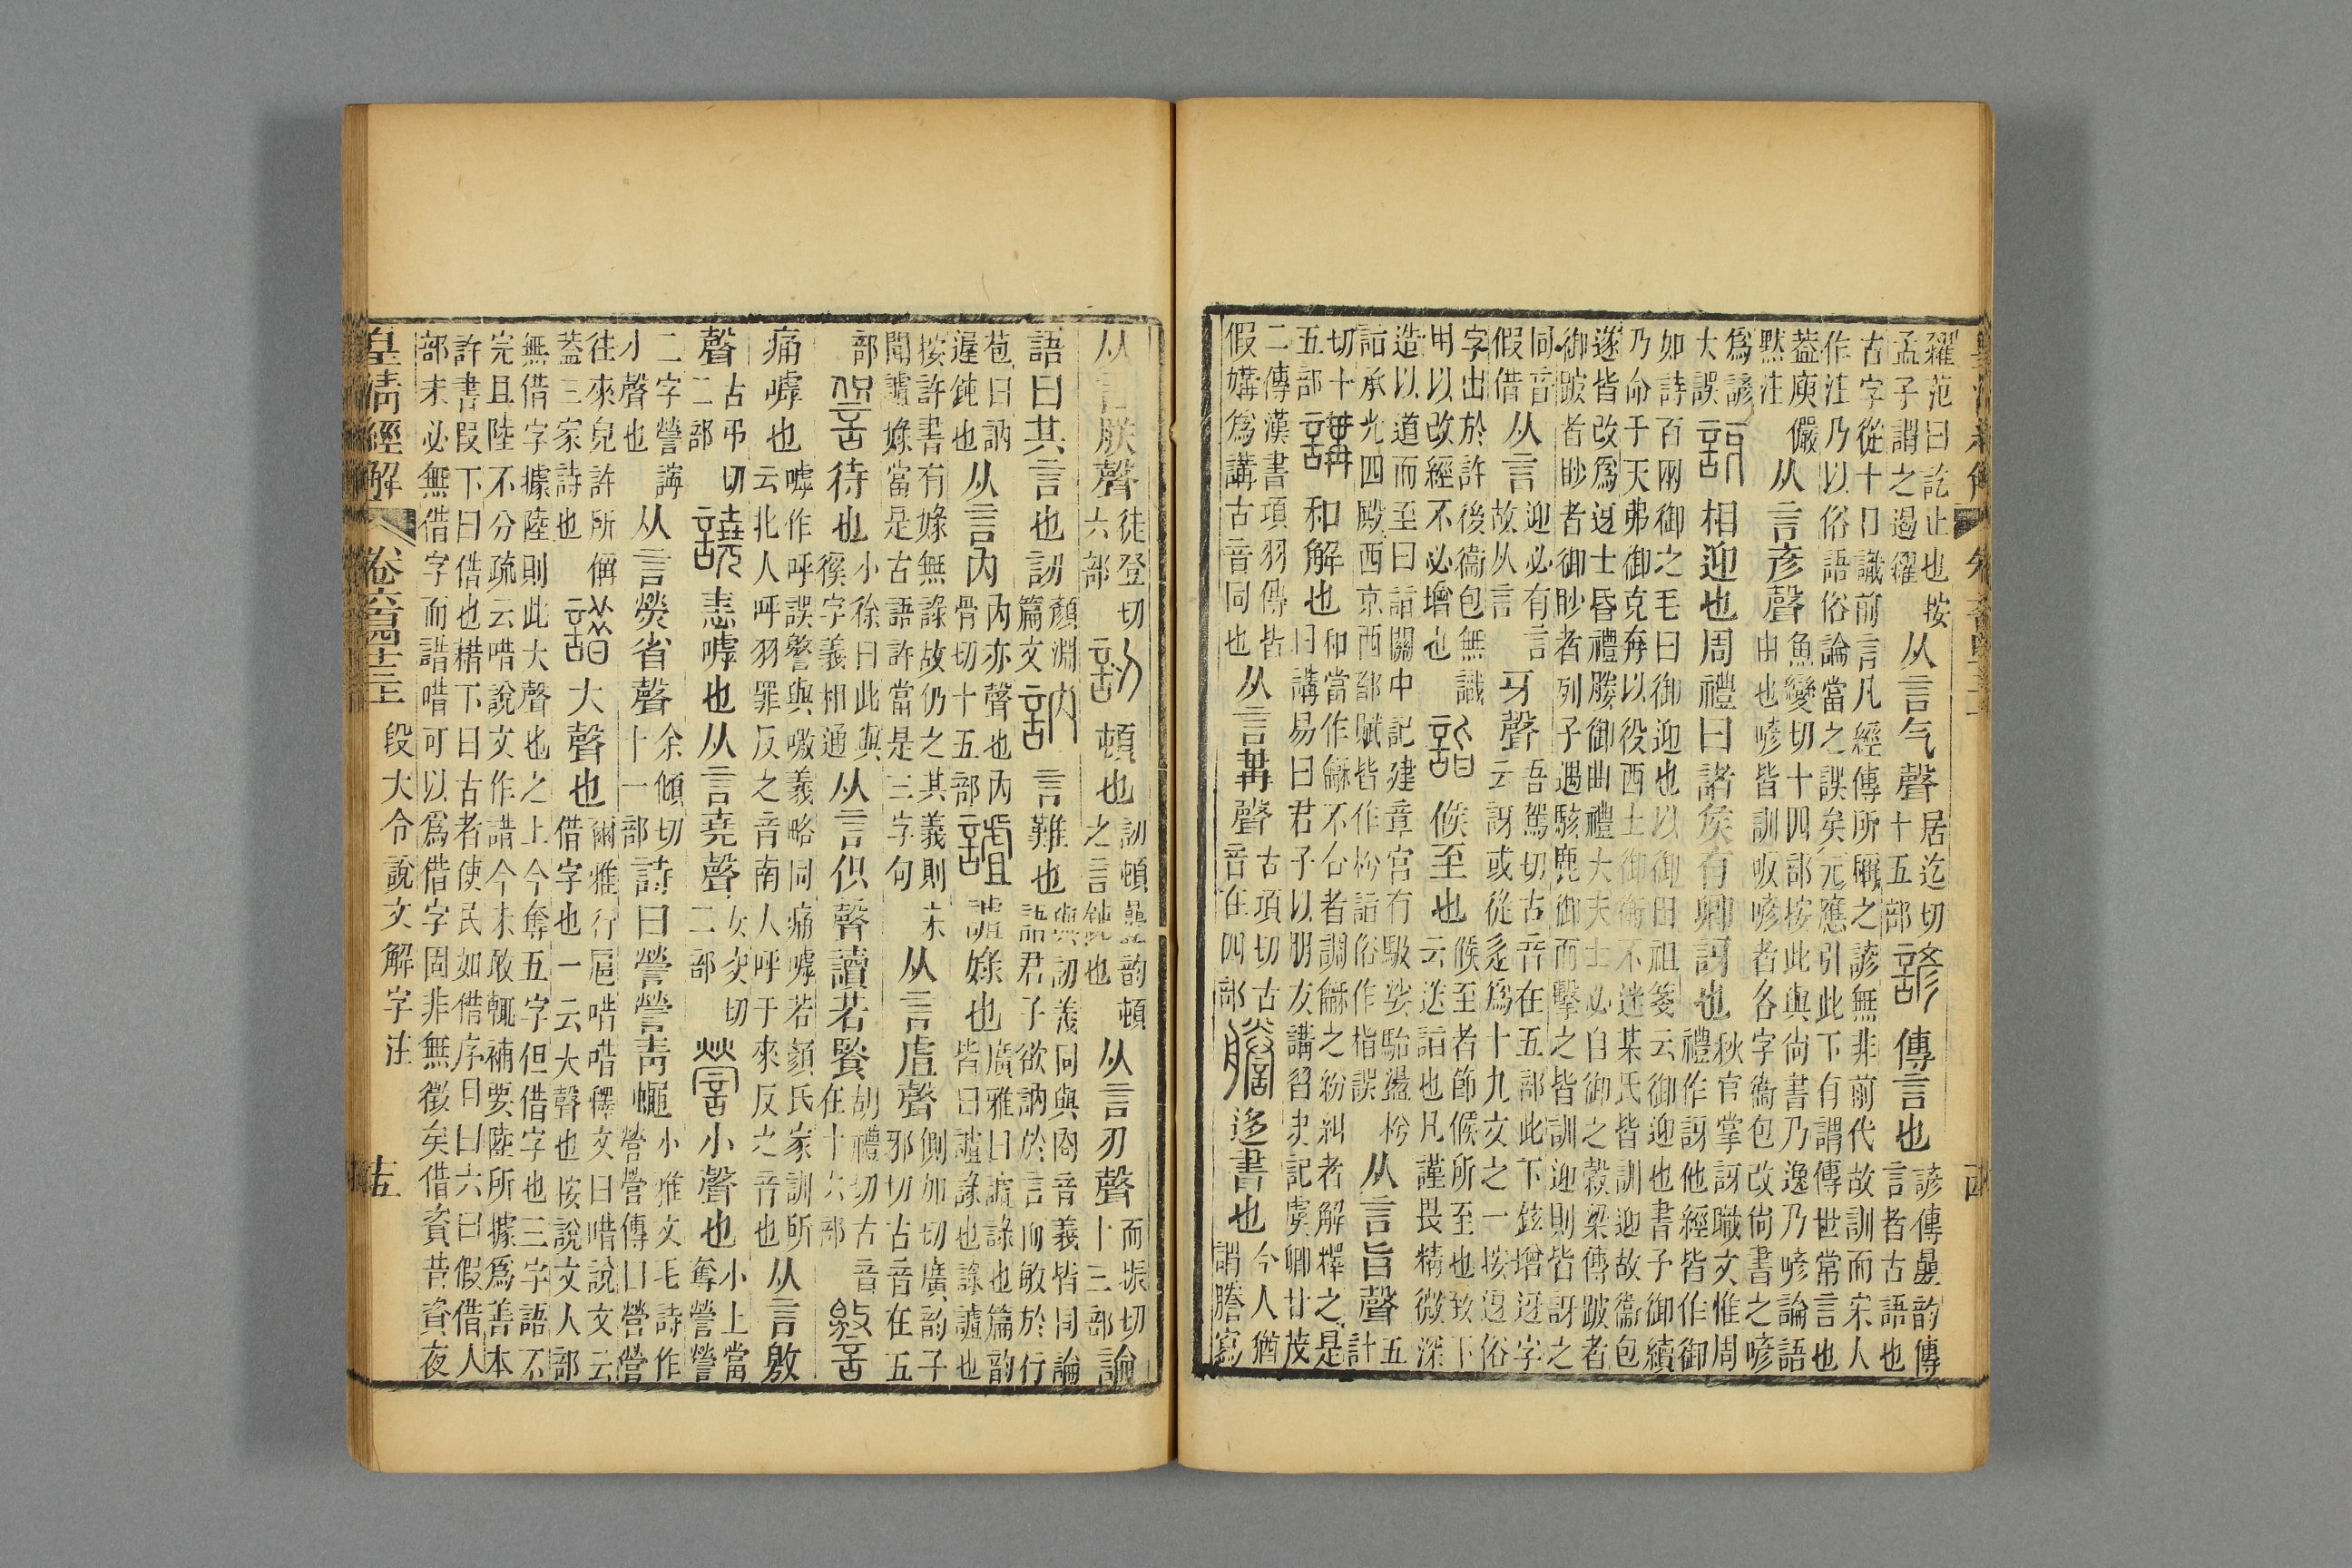 糴范曰訖止也按孟子謂之遏糴从言气聲居迄切十五部諺傳言也諺傳疊韵傳言者古語也
古字從十口識前言凡經傳所稱之諺無非前代故訓而宋人
作注乃以俗語俗論當之誤矣元應引此下有謂傳世常言也
蓋庾儼默注从言彥聲魚變切十四部按此與尚書乃逸乃喭論語由也喭皆訓㕧喭者各字衞包改尚書之喭
爲諺大誤訝相迎也周禮曰諸矦有卿訝也秋官掌訝職文惟周禮作訝他經皆作御
如詩百兩御之毛曰御迎也以御田祖箋云御迎也書予御續
乃命于天弗御克奔以役西土御衡不迷某氏皆訓迎故衞包
遂皆改爲迓士昏禮媵御曲禮大夫士必自御之穀梁傳跛者
御跛者眇者御眇者列子遇駭鹿御而擊之皆訓迎則皆訝之
同音假借从言迎必有言故从言牙聲吾駕切古音在五部此下鉉增迓字云訝或從辵爲十九文之一按迓俗
字出於許後衞包無識用以改經不必增也詣候至也候至者節候所至也致下云送詣也凡謹畏精微深
造以道而至曰詣關中記建章宮有馺娑駘盪枍詣承光四殿西京西都賦皆作枍詣俗作指誤从言旨聲五計
切十五部講和解也和當作龢不合者調龢之紛糾者解釋之是曰講易曰君子以朋友講習史記虞卿甘茂
二傳漢書項羽傳皆假媾爲講古音同也从言冓聲古項切古音在四部謄迻書也今人猶謂謄寫
从言朕聲徒登切六部訒頓也訒頓疊韵頓之言鈍也从言刃聲而振切十三部論
語曰其言也訒顏淵篇文訥言難也與訒義同與㕯音義皆同論語君子欲訥於言而敏於行
苞曰訥遲鈍也从言內內亦聲也內骨切十五部謯謯娽也廣雅曰謯䛯也篇韵皆曰謯䛯也䛯謯也
按許書有娽無䛯故仍之其義則未聞謯娽當是古語許當是三字句从言虘聲側加切廣韵子邪切古音在五
部待也小徐曰此與徯字義相通从言伿聲讀若餥胡禮切古音在十六部譥
痛嘑也嘑作呼誤譥與噭義略同痛嘑若顏氏家訓所云北人呼羽罪反之音南人呼于來反之音也从言敫
聲古弔切二部譊恚嘑也从言堯聲女交切二部營小聲也小上當奪營營
二字營謂小聲也从言熒省聲余傾切十一部詩曰營營青蠅小雅文毛詩作營營傳曰營營
往來皃許所偁蓋三家詩也諎大聲也爾雅行扈唶唶釋文曰唶說文云借字也一云大聲也按說文人部
無借字據陸則此大聲也之上今奪五字但借字也三字語不
完且陸不分疏云唶說文作諎今未敢輒補要陸所據爲善本
許書叚下曰借也耤下曰古者使民如借序曰曰六曰假借人
部未必無借字而諎唶可以爲借字固非無徵矣借資昔資夜
皇清經解 卷六百四十三 段大令說文解字注 十五